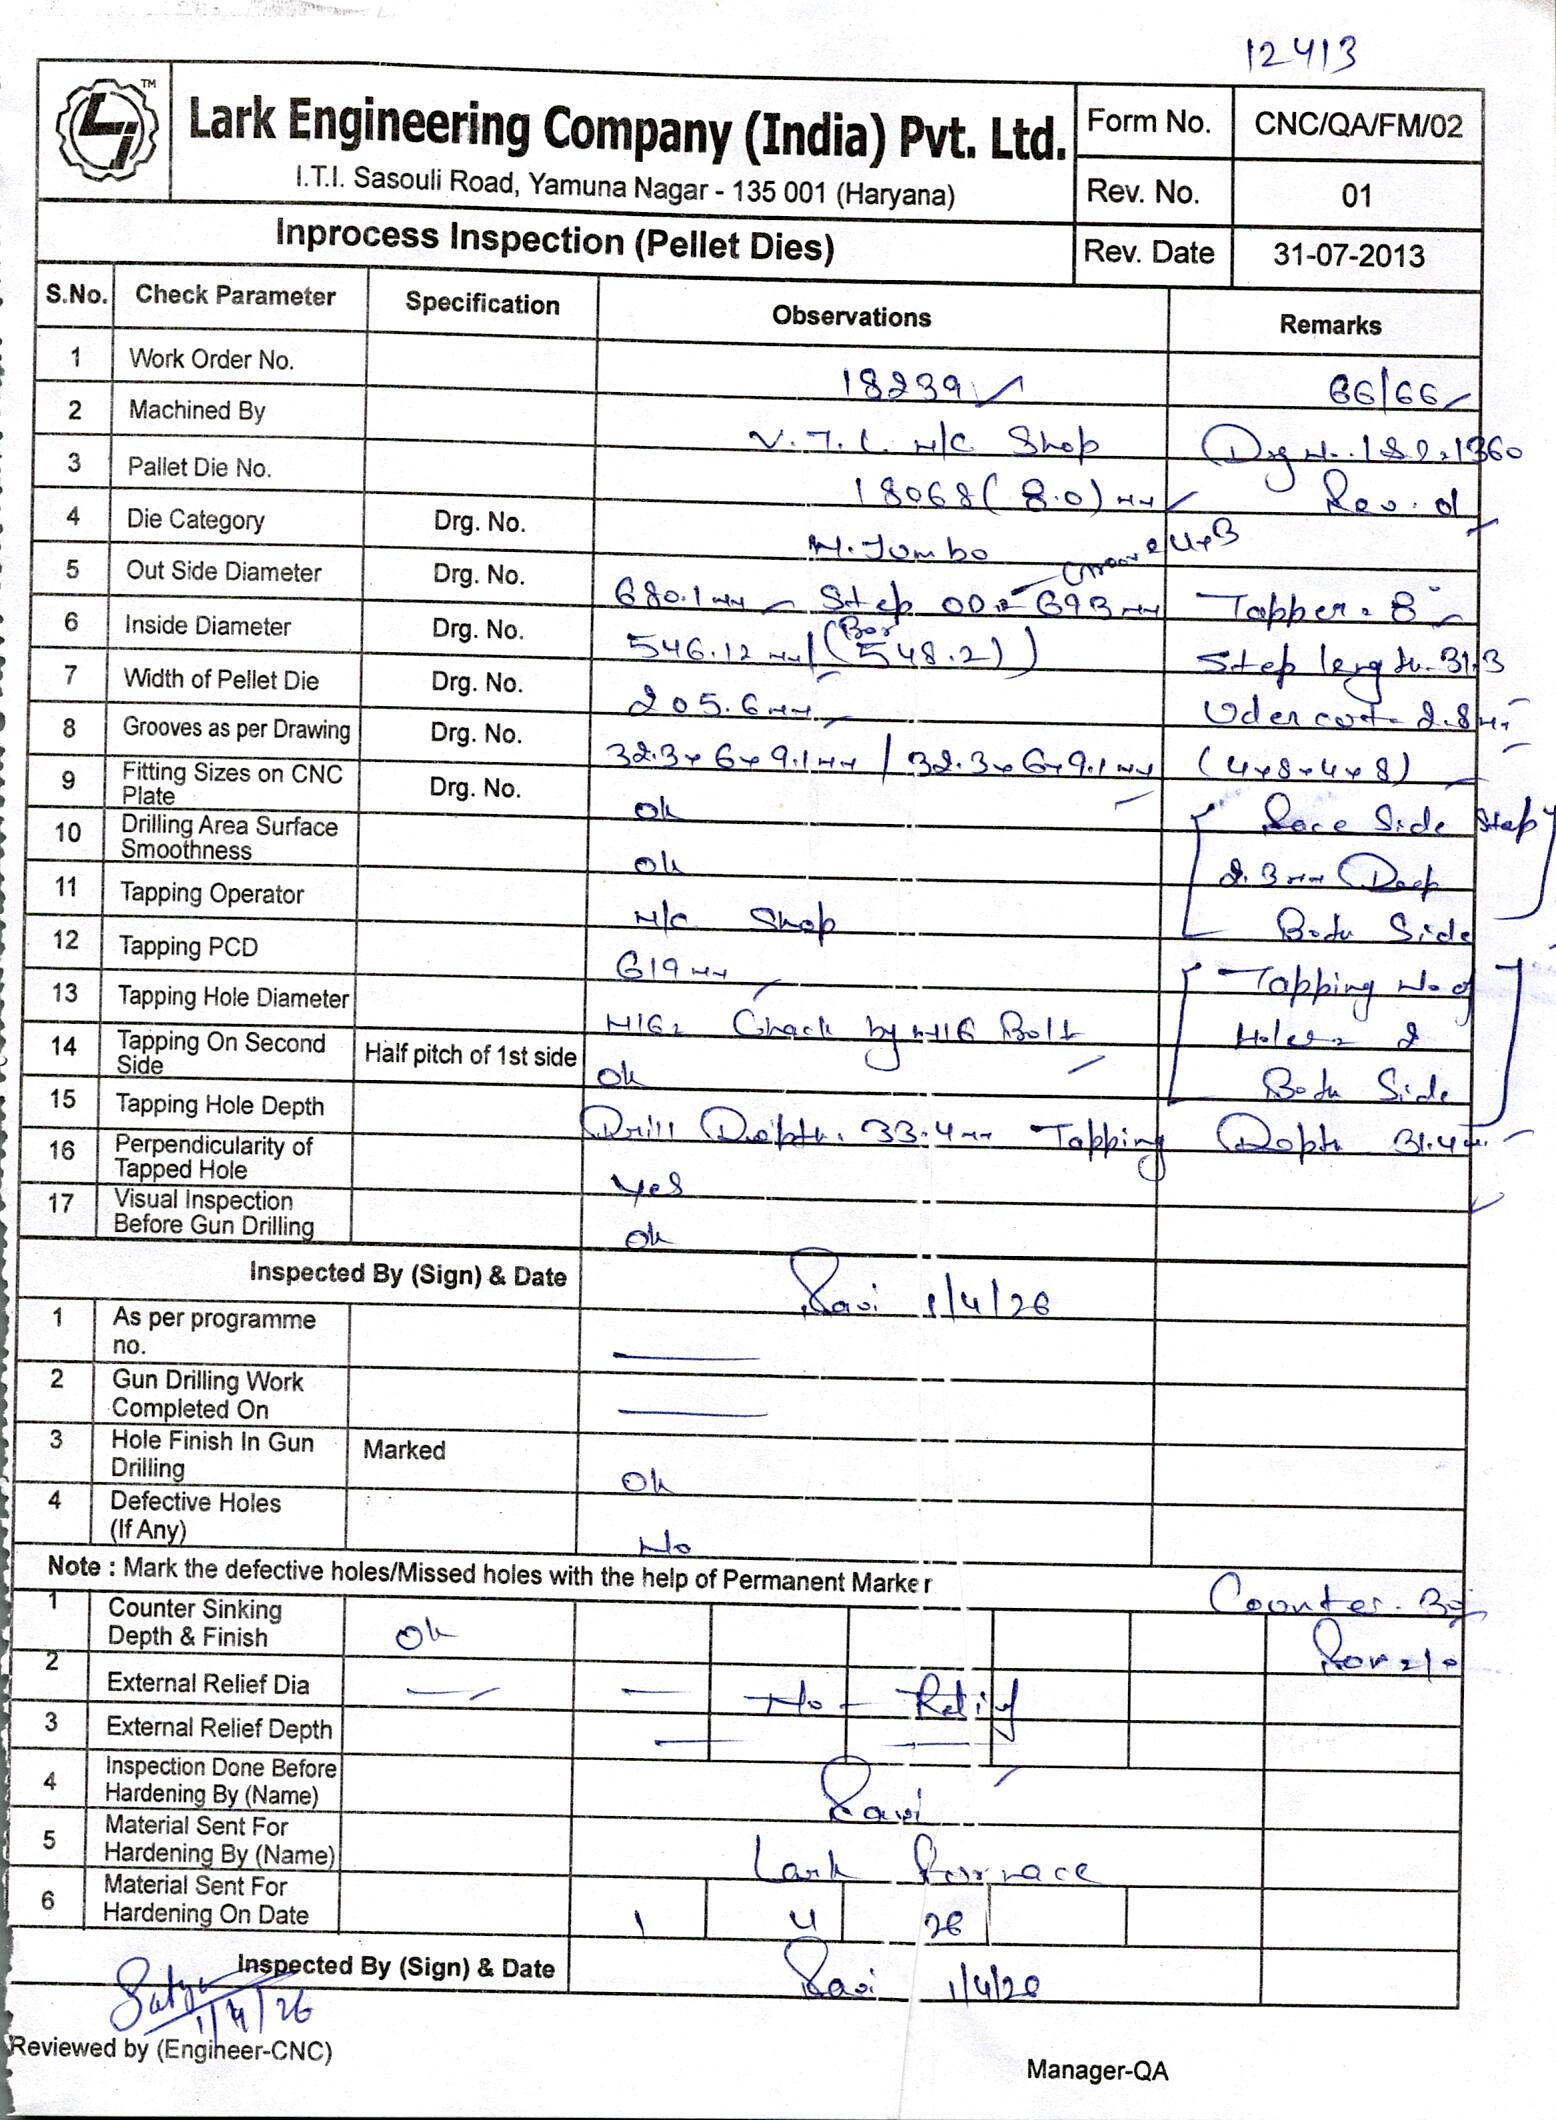 12413
TM
Lark Engineering Company (India) Pvt. Ltd.
I.T.I. Sasouli Road, Yamuna Nagar - 135 001 (Haryana)
Form No. CNC/QA/FM/02
Rev. No. 01
Inprocess Inspection (Pellet Dies)
Rev. Date 31-07-2013
S.No. Check Parameter Specification Observations Remarks
1 Work Order No. 18239 66/66
2 Machined By V.T.L M/C Shop Drg No.
3 Pallet Die No. 18068 (8.0) mm Rev.
4 Die Category Drg. No. M. Jumbo
5 Out Side Diameter Drg. No. 680.1 mm Step OD = 693 mm Tapper = 8°
6 Inside Diameter Drg. No. 546.12 mm (548.2) Step length 31.3
7 Width of Pellet Die Drg. No. 205.6 mm Uder cut - 2.8 mm
8 Grooves as per Drawing Drg. No. 32.3 x 6 x 9.1 mm / 32.3 x 6 x 9.1 mm (4x8x4x8)
9 Fitting Sizes on CNC Plate Drg. No. Ok Side Step
10 Drilling Area Surface Smoothness Ok 2.3 mm Deep
11 Tapping Operator M/C Shop Both Side
12 Tapping PCD 619 mm Tapping No. of
13 Tapping Hole Diameter M16 Check by M16 Bolt Holes = 2
14 Tapping On Second Side Half pitch of 1st side Ok Both Side
15 Tapping Hole Depth Drill Depth. 33.4 mm Tapping Depth 31.4 mm
16 Perpendicularity of Tapped Hole Yes
17 Visual Inspection Before Gun Drilling Ok
Inspected By (Sign) & Date Ravi 1/4/26
1 As per programme no.
2 Gun Drilling Work Completed On
3 Hole Finish In Gun Drilling Marked Ok
4 Defective Holes (If Any) No
Note : Mark the defective holes/Missed holes with the help of Permanent Marker
Counter
1 Counter Sinking Depth & Finish Ok
2 External Relief Dia No - Relief
3 External Relief Depth
4 Inspection Done Before Hardening By (Name) Ravi
5 Material Sent For Hardening By (Name) Lark Furnace
6 Material Sent For Hardening On Date 1 4 26
Inspected By (Sign) & Date Ravi 1/4/26
1/4/26
Reviewed by (Engineer-CNC)
Manager-QA